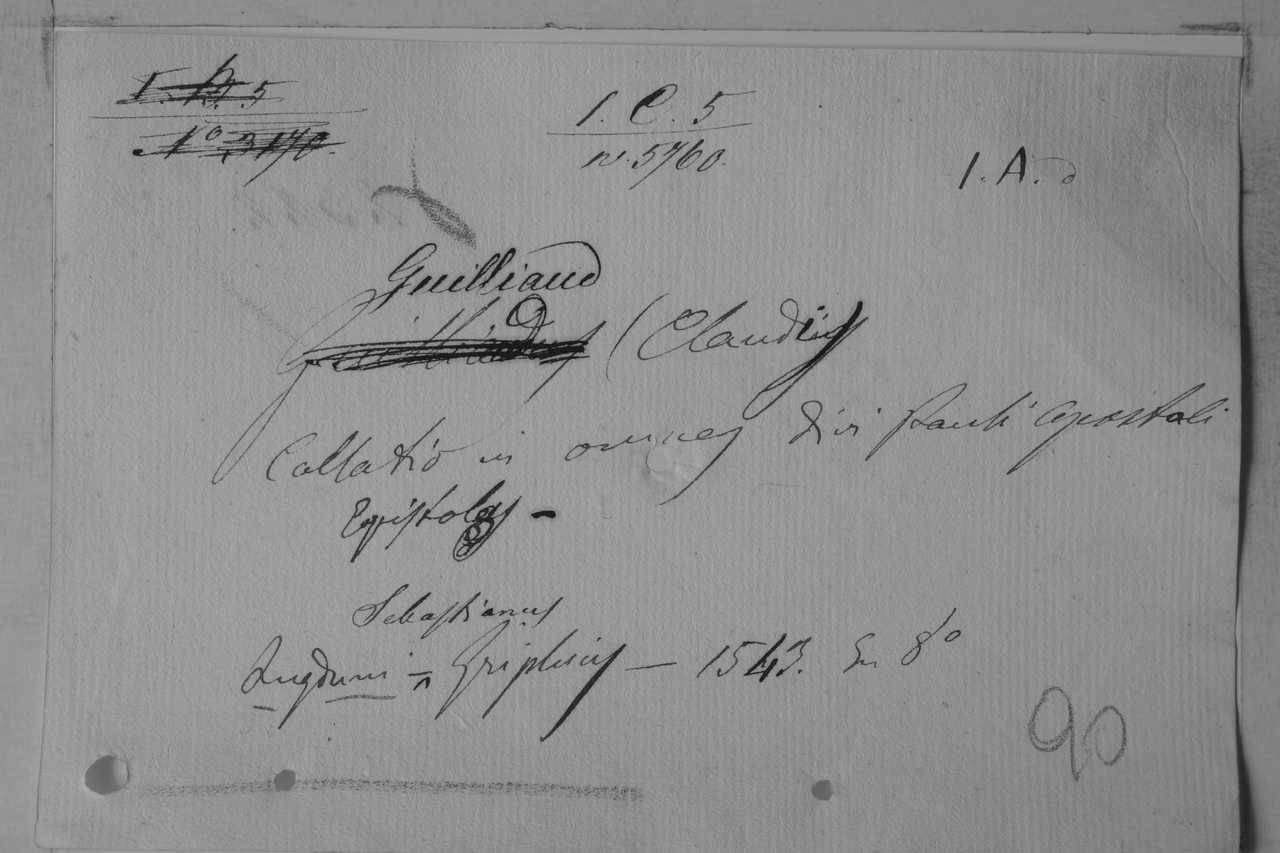 I. B. 5
N° 3170.
1. C. 5
n. 5760.
1. A.
Guilliaud
Guilliadus (Claudius
Collatio in omnes divi Pauli apostoli
Epistolas -
Sebastianus
Lugduni = Griphius — 1543. En 8°
90